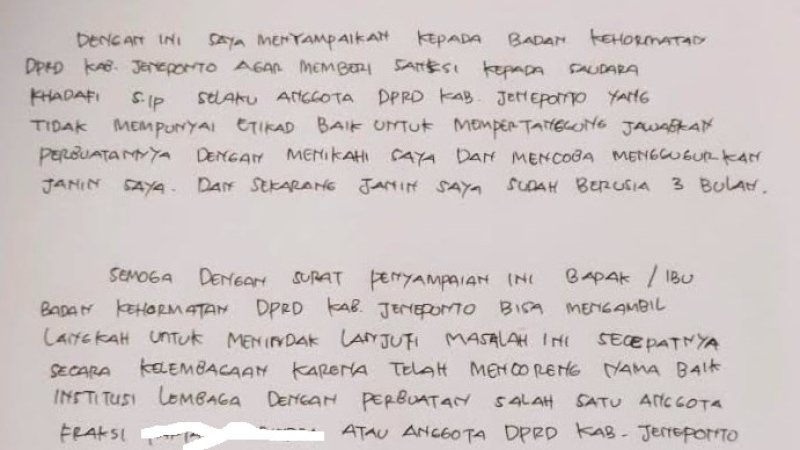 DENGAN INI SAYA MENYAMPAIKAN KEPADA BADAN KEHORMATAN
DPRD KAB. JENEPONTO AGAR MEMBERI SANKSI KEPADA SAUDARA
KHADAFI S.ip SELAKU ANGGOTA DPRD KAB. JENEPONTO YANG
TIDAK MEMPUNYAI ETIKAD BAIK UNTUK MEMPERTANGGUNG JAWABKAN
PERBUATANNYA DENGAN MENIKAHI SAYA DAN MENCOBA MENGGUGURKAN
JANIN SAYA. DAN SEKARANG JANIN SAYA SUDAH BERUSIA 3 BULAN.
SEMOGA DENGAN SURAT PENYAMPAIAN INI BAPAK / IBU
BADAN KEHORMATAN DPRD KAB. JENEPONTO BISA MENGAMBIL
LANGKAH UNTUK MENINDAK LANJUTI MASALAH INI SECEPATNYA
SECARA KELEMBAGAAN KARENA TELAH MENCORENG NAMA BAIK
INSTITUSI LEMBAGA DENGAN PERBUATAN SALAH SATU ANGGOTA
FRAKSI ATAU ANGGOTA DPRD KAB. JENEPONTO